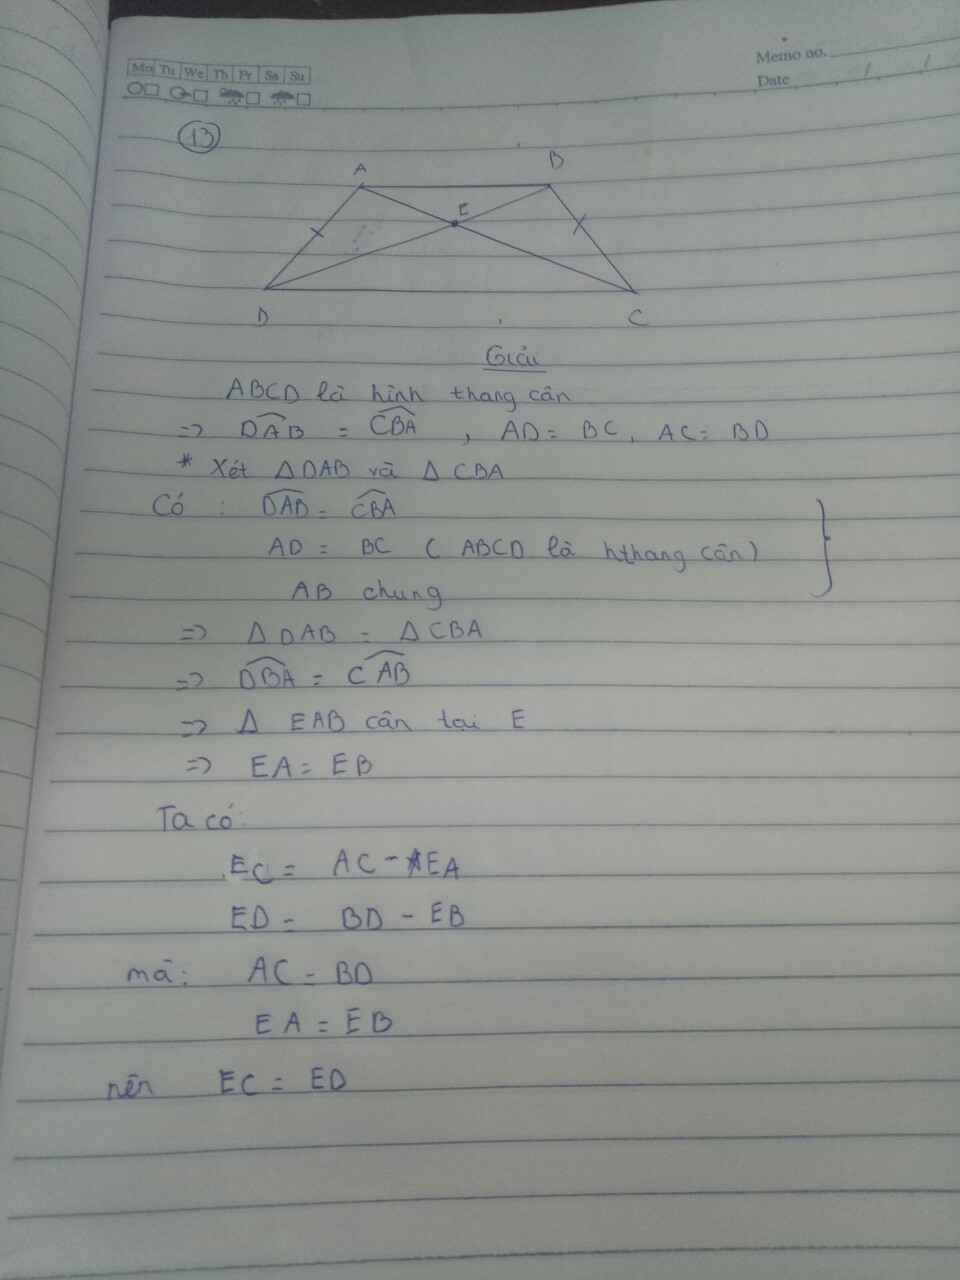 Mo Tu We Th Fr Sa Su
Memo no.
Date / /
13
A
B
E
D
C
Giải
ABCD là hình thang cân
=> DAB = CBA , AD = BC, AC = BD
* Xét Δ DAB và Δ CBA
Có : DAB = CBA
AD = BC ( ABCD là hthang cân)
AB chung
=> Δ DAB = Δ CBA
=> DBA = CAB
=> Δ EAB cân tại E
=> EA = EB
Ta có:
EC = AC - EA
ED = BD - EB
mà: AC = BD
EA = EB
nên EC = ED